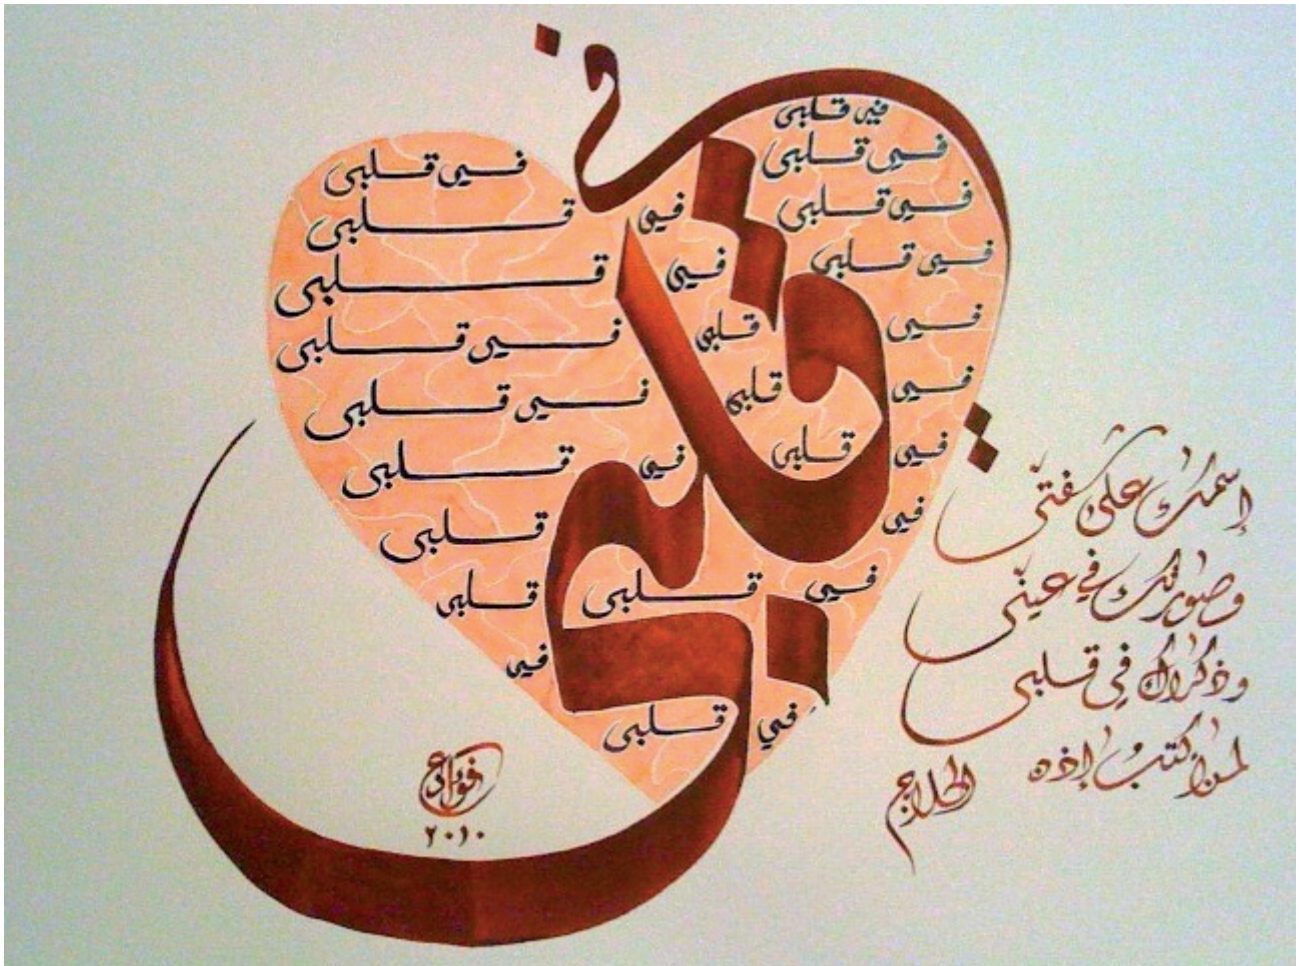 في قلبي
في قلبي
في قلبي في قلبي
في قلبي في قلبي
في قلبي في قلبي
في قلبي في قلبي
في قلبي في قلبي
في قلبي في قلبي
في قلبي
في قلبي قلبي
في
في قلبي
إسمك على شفتي
وصورتك في عيني
وذكراك في قلبي
لمن أكتب إذن
الحلاج
فؤاد
٢٠١٠